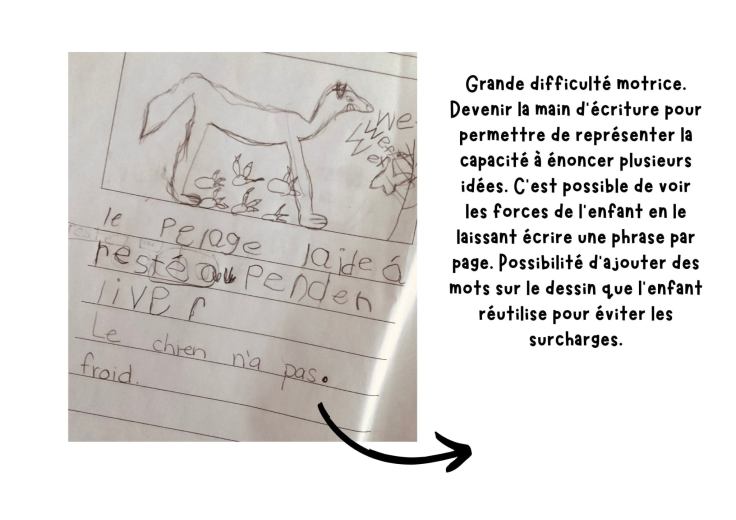 We
Wee
Wex
le pelage laide à
resté au penden
liver
Le chien n'a pas.
froid.
Grande difficulté motrice.
Devenir la main d'écriture pour
permettre de représenter la
capacité à énoncer plusieurs
idées. C'est possible de voir
les forces de l'enfant en le
laissant écrire une phrase par
page. Possibilité d'ajouter des
mots sur le dessin que l'enfant
réutilise pour éviter les
surcharges.